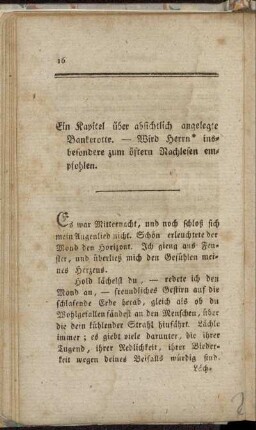 16
Ein Kapitel über absichtlich angelegte
Bankerotte. — Wird Herrn* ins-
besondere zum öftern Nachlesen em-
pfohlen.
Es war Mitternacht, und noch schloß sich
mein Augenlied nicht. Schön erleuchtete der
Mond den Horizont. Ich gieng aus Fen-
ster, und überließ mich den Gefühlen mei-
nes Herzens.
Hold lächelst du, — redete ich den
Mond an, — freundliches Gestirn auf die
schlafende Erde herab, gleich als ob du
Wohlgefallen fändest an den Menschen, über
die dein kühlender Strahl hinfährt. Lächle
immer; es giebt viele darunter, die ihrer
Tugend, ihrer Redlichkeit, ihrer Bieder-
keit wegen deines Beifalls würdig sind.
Läch-